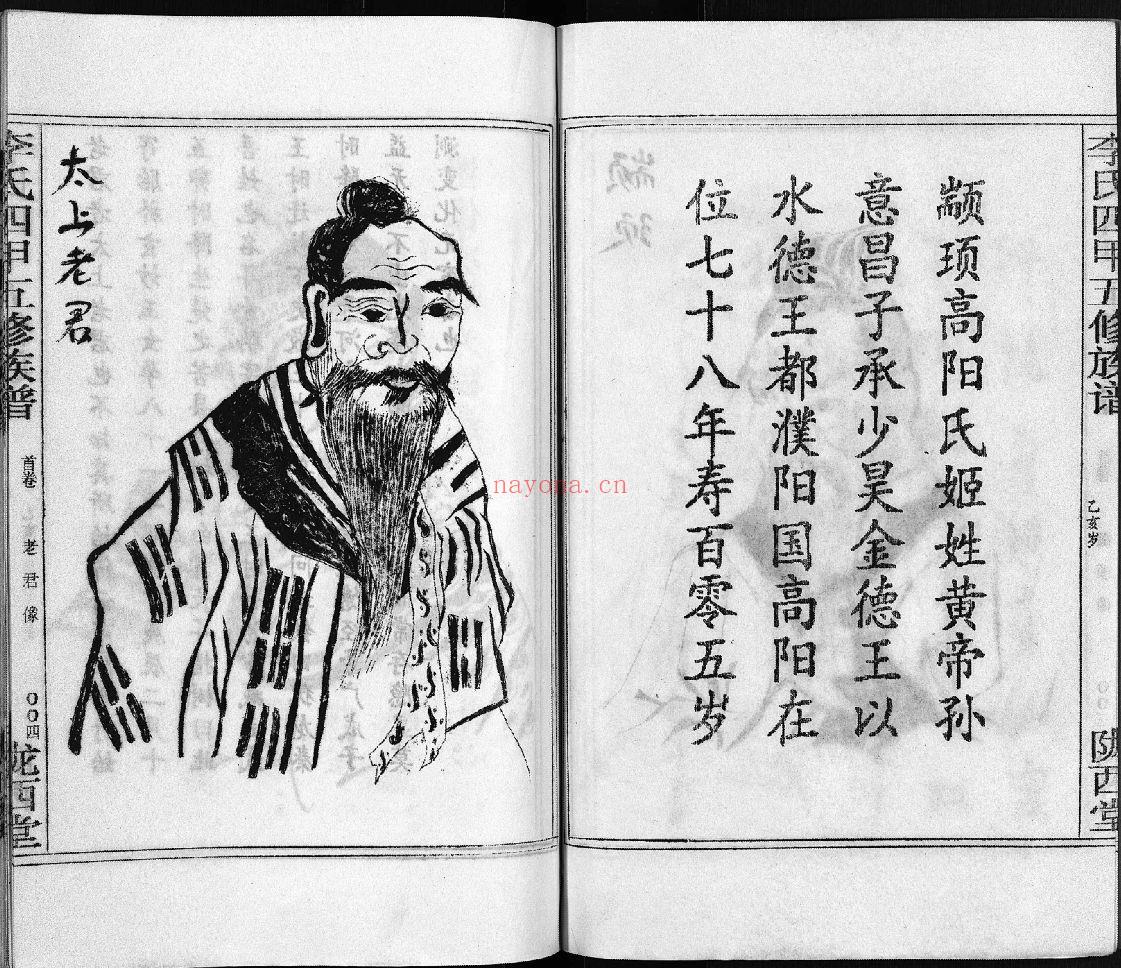 李氏四甲五修族谱
乙亥岁
陇西堂
颛顼高阳氏姬姓黄帝孙
意昌子承少昊金德王以
水德王都濮阳国高阳在
位七十八年寿百零五岁
太上老君
李氏四甲五修族谱
首卷
老君像
〇〇四
陇西堂
nayona.cn